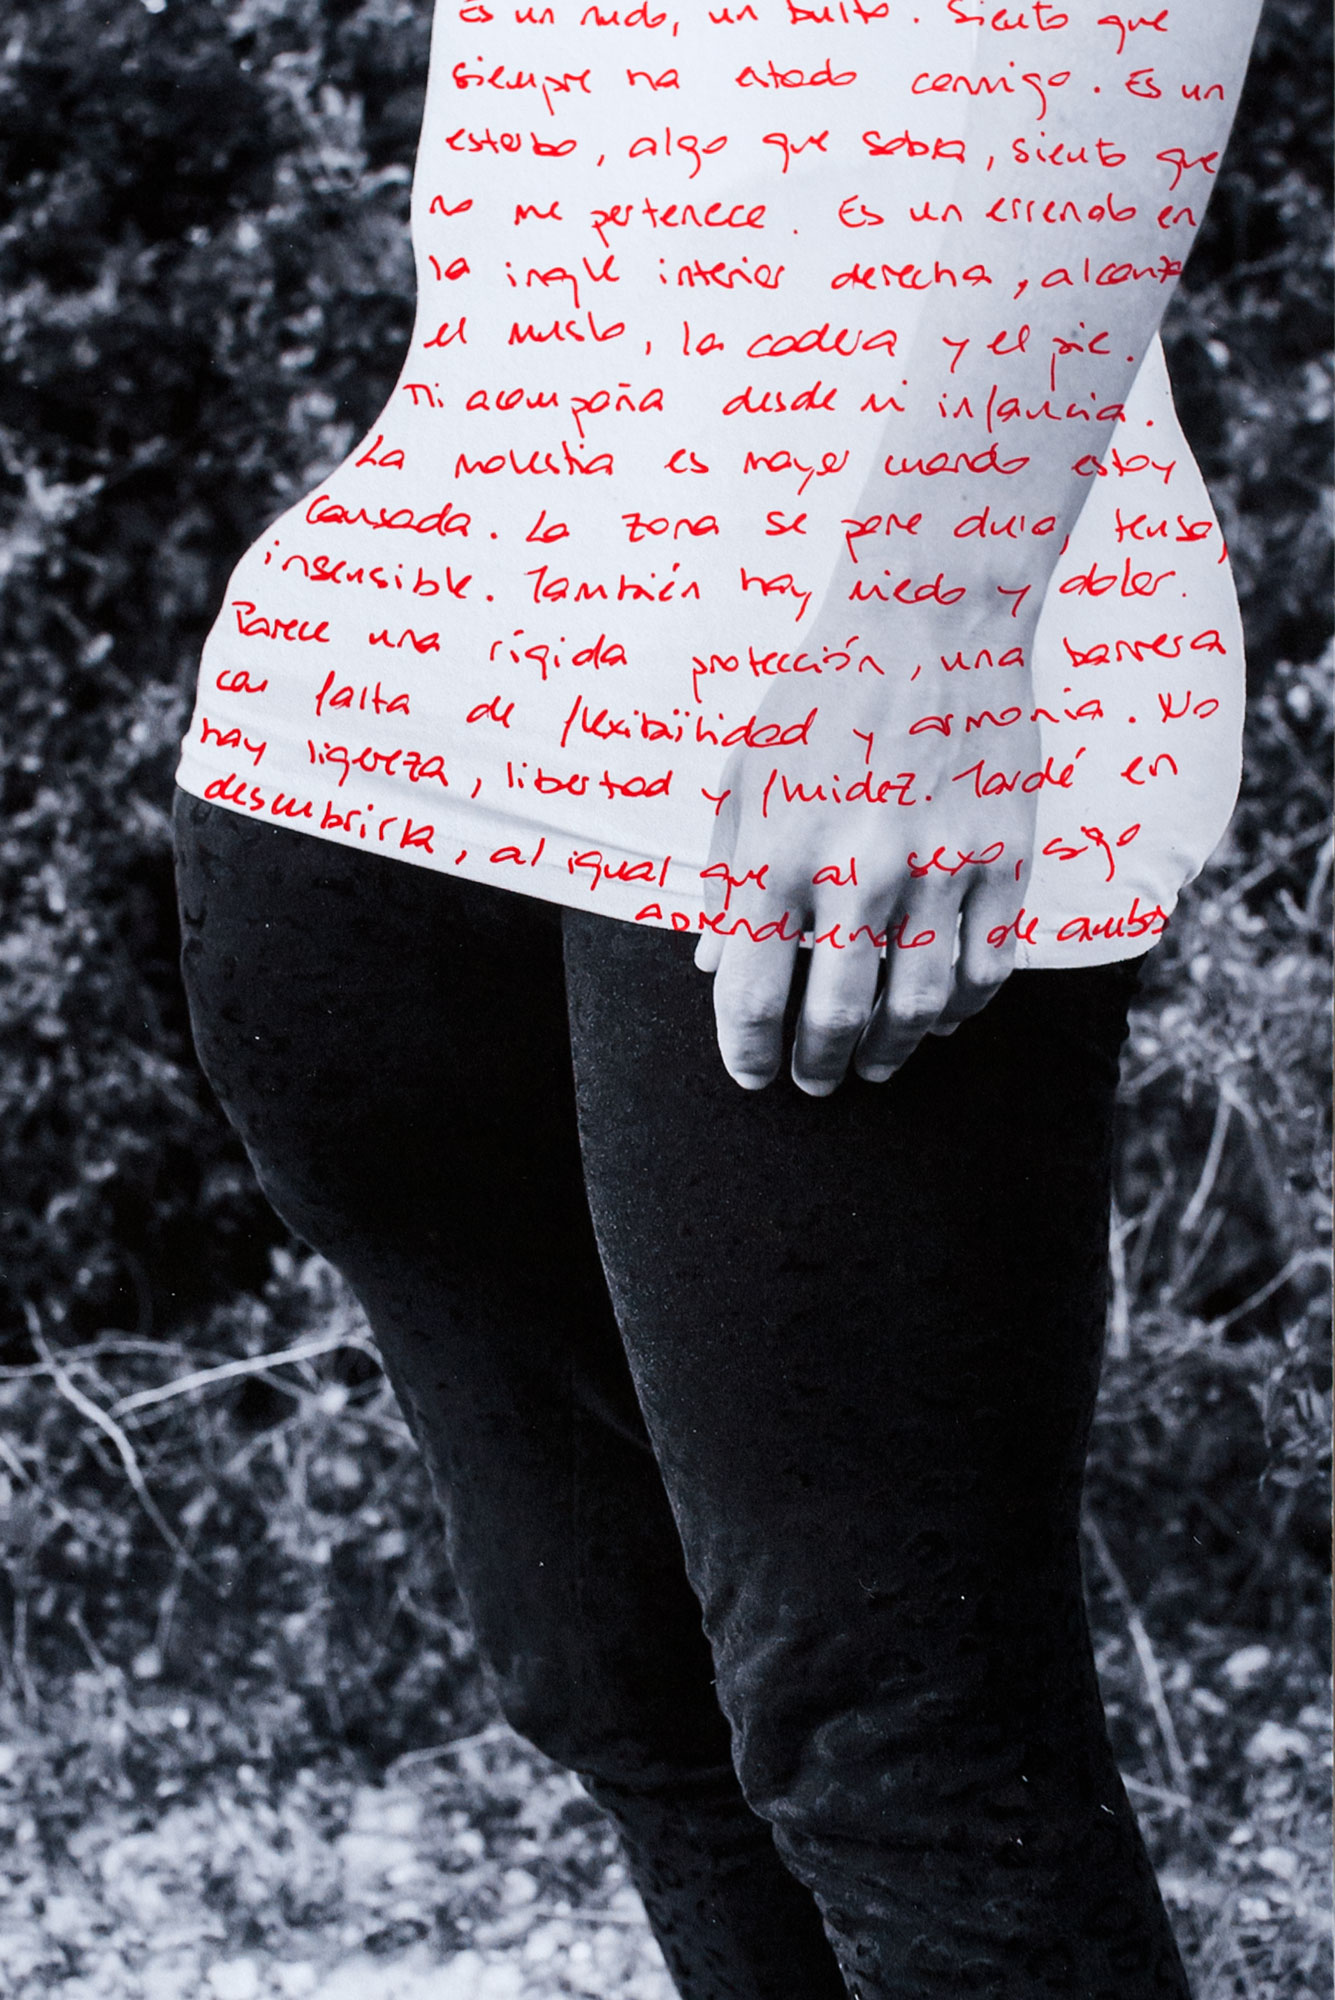 Es un nudo, un bulto. Siento que
siempre ha estado conmigo. Es un
estorbo, algo que sobra, siento que
no me pertenece. Es un en
la ingle interior derecha, alcanza
el muslo, la cadera y el pie.
Mi acompaña desde mi infancia.
La molestia es mayor cuando estoy
cansada. La zona se pone dura, tensa,
insensible. También hay miedo y dolor.
Parece una rígida protección, una barrera
con falta de flexibilidad y armonía. No
hay ligereza, libertad y fluidez. Tardé en
descubrirla, al igual que al sexo, sigo
aprendiendo de ambos